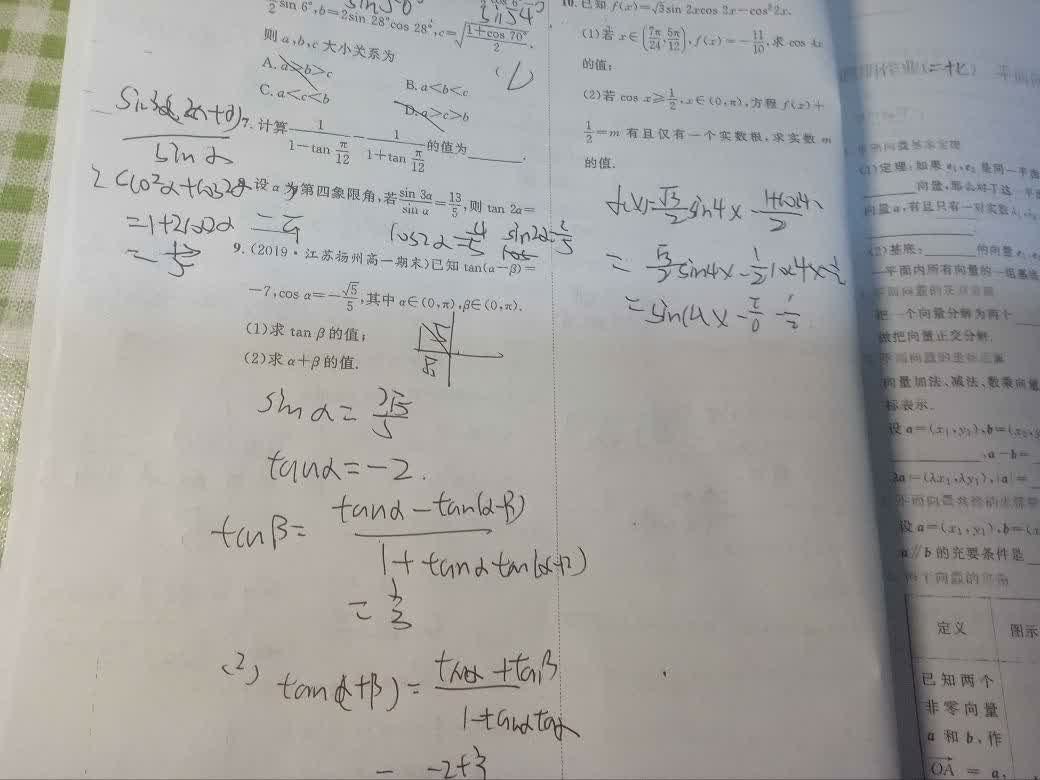 sin 6°,b=2sin 28°cos 28°,c=√(1+cos 70°/2),
则a,b,c大小关系为
A. a>b>c
B. a<b<c
C. a<c<b
D. a>c>b
7. 计算 1/(1-tan π/12) - 1/(1+tan π/12) 的值为______.
8. 设α为第四象限角,若 sin 3α/sin α=13/5,则 tan 2α=
cos2α=4/5
=1+2cos2α
9. (2019·江苏扬州高一期末)已知 tan(α-β)=
-7,cos α=-√5/5,其中α∈(0,π),β∈(0,π).
(1)求 tan β 的值;
(2)求 α+β 的值.
sin α = 2√5/5
tanα=-2.
tanβ= (tanα-tan(α-β))/(1+tanα tan(α-β))
= 1/3
(2) tan(α+β)= (tanα+tanβ)/(1-tanαtanβ)
-2+1/3
10. 已知 f(x)=√3sin 2xcos 2x-cos²2x.
(1)若 x∈(7π/24,5π/12),f(x)=-11/10,求 cos 4x
的值;
(2)若 cos x≥1/2,x∈(0,π),方程 f(x)+
1/2=m 有且仅有一个实数根,求实数 m
的值.
f(x)=√3/2 sin4x - (1+cos4x)/2
= √3/2 sin4x - 1/2 cos4x - 1/2
=sin(4x - π/6 - 1/2
(1)定理:如果e₁,e₂是同一平面
向量,那么对于这一平
向量a,有且只有一对实数λ₁,
(2)基底:______的向量e₁,
一平面内所有向量的一组基底
把一个向量分解为两个
做把向量正交分解.
向量加法、减法、数乘向量
标表示.
设a=(x₁,y₁),b=(x₂,y
,a-b=
λa=(λx₁,λy₁),|a|=
设a=(x₁,y₁),b=(x
a∥b的充要条件是
定义
图示
已知两个
非零向量
a和b,作
OA=a,